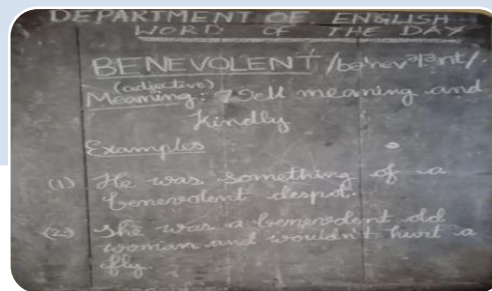 DEPARTMENT OF ENGLISH
WORD OF THE DAY
BENEVOLENT /bəˈnevᵊlənt/.
(adjective)
Meaning: Well meaning and
Kindly
Examples
(1) He was something of a
benevolent despot.
(2) She was a benevolent old
woman and wouldn't hurt a
fly.